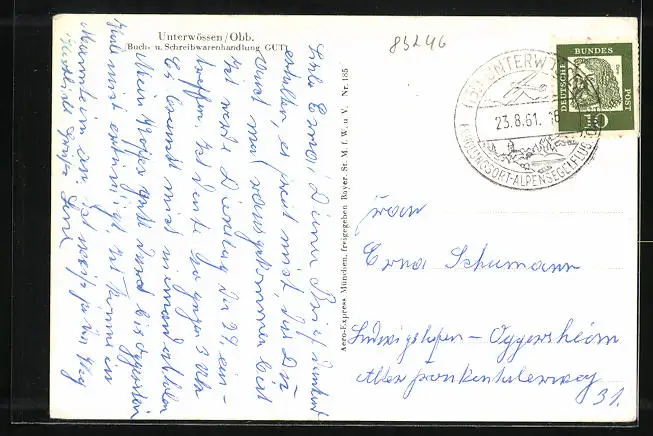 Unterwössen/Obb.
Buch- u. Schreibwarenhandlung GUT
83246
Liebe Erna! Deinen Brief dankend
erhalten, es freut mich, das Du
mal rausgekommen bist
Ich werde Dienstag den 29. ein-
treffen. Ich denke so gegen 3 Uhr
Es braucht mich niemand abholen
Mein Koffer wird bis Oggersheim
Mannheim an. Ich weiß ja den Weg
Herzliche Grüße
Aero-Express München, freigegeben Bayer. St. M. f. W. u. V. Nr. 185
UNTERWÖSSEN
23.8.61. 16
ALPENSEGELFLUG
DEUTSCHE BUNDES POST
10
Frau
Erna Schumann
Ludwigshafen - Oggersheim
Alter Frankenthalerweg
31.